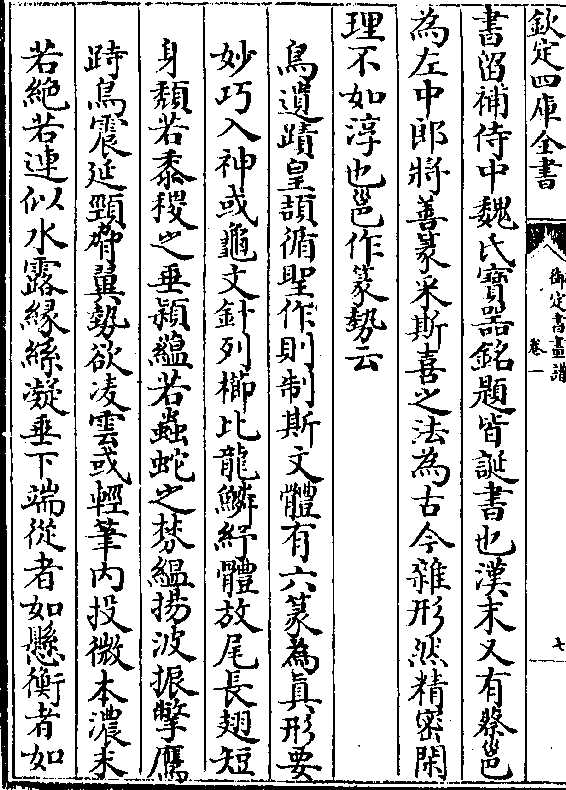 欽定四庫全書
御定書畫譜
卷一
七
書㽞補侍中魏氏寳器銘題皆誕書也漢末又有蔡邕
為左中郎將善篆采斯喜之法為古今雜形然精密閑
理不如淳也邕作篆勢云
鳥遺蹟皇頡循聖作則制斯文體有六篆為真形要
妙巧入神或龜文針列櫛比龍鱗紓體放尾長翅短
身頹若黍稷之垂穎緼若蟲蛇之棼緼揚波振擎鷹
跱鳥震延頸脅翼勢欲凌雲或輕筆内投微本濃末
若絶若連似水露緣絲凝垂下端從者如懸衡者如